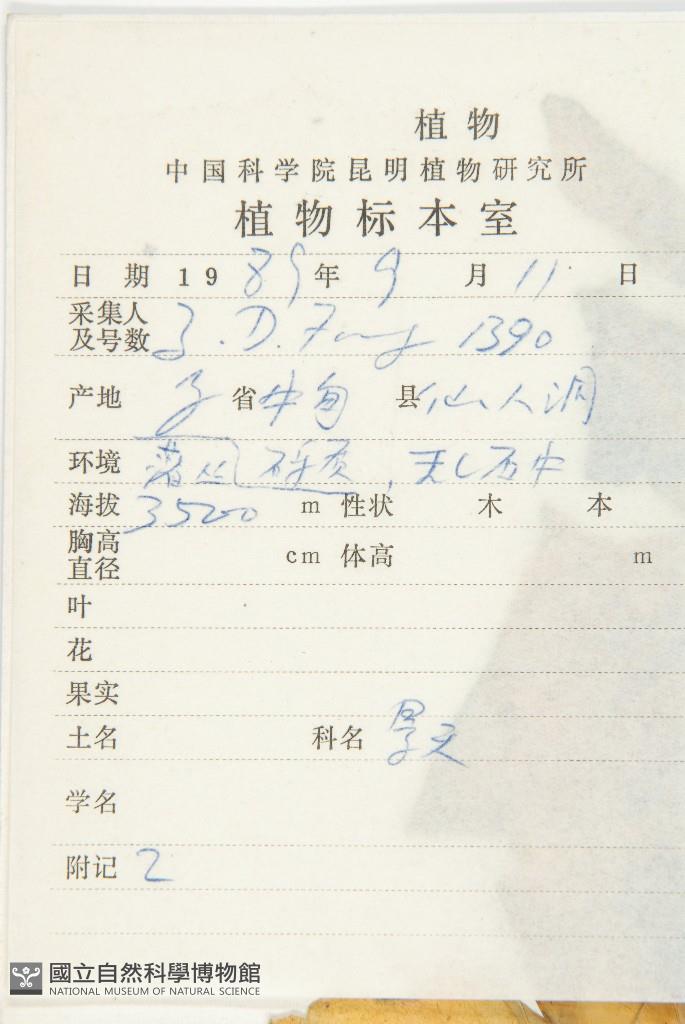 植物
中国科学院昆明植物研究所
植物标本室
日期 19 89 年 9 月 11 日
采集人及号数 . D. Fang 1390
产地 省 中甸 县 仙人洞
环境 石
海拔 3520 m 性状 木 本
胸高直径 cm 体高 m
叶
花
果实
土名 科名 景天
学名
附记 2
國立自然科學博物館
NATIONAL MUSEUM OF NATURAL SCIENCE